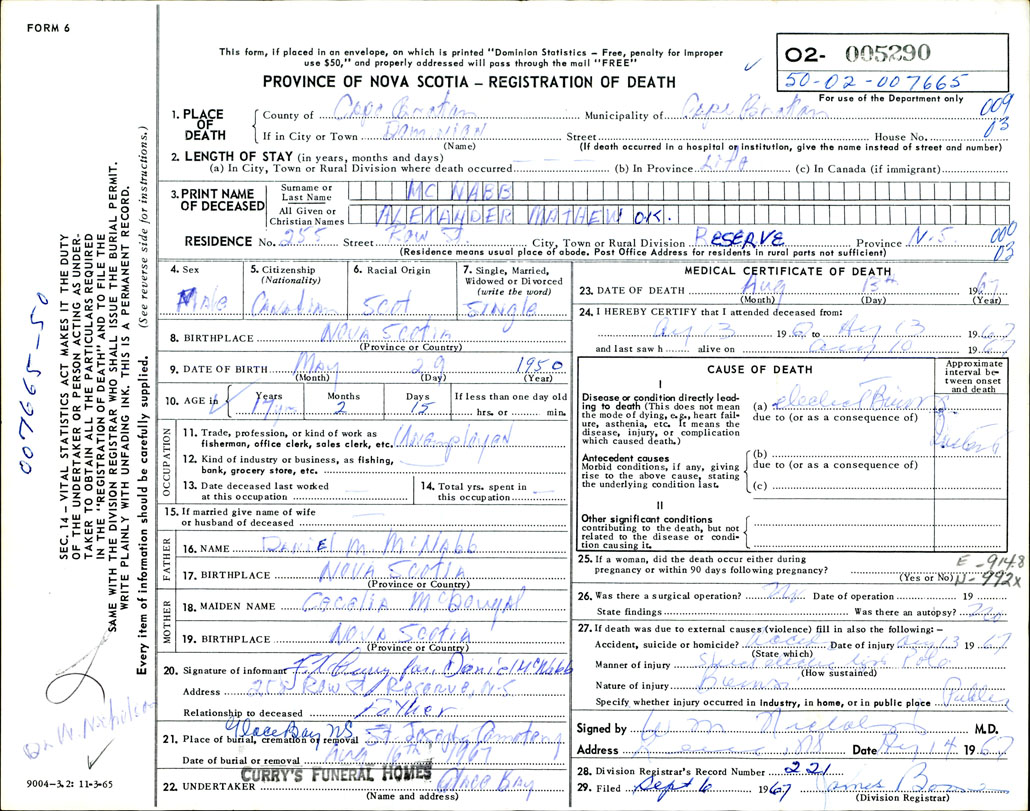 FORM 6
This form, if placed in an envelope, on which is printed "Dominion Statistics – Free, penalty for improper
use $50," and properly addressed will pass through the mail "FREE"
PROVINCE OF NOVA SCOTIA – REGISTRATION OF DEATH
02- 005290
50-02-007665
For use of the Department only
009
03
1. PLACE OF DEATH
County of Cape Breton Municipality of Cape Breton
If in City or Town Dominion Street House No.
(Name) (If death occurred in a hospital or institution, give the name instead of street and number)
2. LENGTH OF STAY (in years, months and days)
(a) In City, Town or Rural Division where death occurred (b) In Province Life (c) In Canada (if immigrant)
3. PRINT NAME OF DECEASED
Surname or Last Name MC NABB
All Given or Christian Names ALEXANDER MATHEW OK.
RESIDENCE No. 255 Street Row St. City, Town or Rural Division RESERVE Province N.S.
000
03
(Residence means usual place of abode. Post Office Address for residents in rural parts not sufficient)
4. Sex
Male
5. Citizenship
(Nationality)
Canadian
6. Racial Origin
Scot
7. Single, Married,
Widowed or Divorced
(write the word)
Single
8. BIRTHPLACE Nova Scotia
(Province or Country)
9. DATE OF BIRTH May 29 1950
(Month) (Day) (Year)
10. AGE in Years Months Days If less than one day old
17 2 15 hrs. or min.
OCCUPATION
11. Trade, profession, or kind of work as
fisherman, office clerk, sales clerk, etc. Unemployed
12. Kind of industry or business, as fishing,
bank, grocery store, etc.
13. Date deceased last worked
at this occupation
14. Total yrs. spent in
this occupation
15. If married give name of wife
or husband of deceased
FATHER
16. NAME Daniel M McNabb
17. BIRTHPLACE Nova Scotia
(Province or Country)
MOTHER
18. MAIDEN NAME Cecelia McDougal
19. BIRTHPLACE Nova Scotia
(Province or Country)
20. Signature of informant Daniel McNabb
Address 255 Row St Reserve, N.S
Relationship to deceased Father
Glace Bay NS
21. Place of burial, cremation or removal St Josephs Cemetery
Date of burial or removal Aug 16th 1967
CURRY'S FUNERAL HOMES
22. UNDERTAKER Glace Bay
(Name and address)
MEDICAL CERTIFICATE OF DEATH
23. DATE OF DEATH Aug 13th 1967
(Month) (Day) (Year)
24. I HEREBY CERTIFY that I attended deceased from:
Aug 13 1967 to Aug 13 1967
and last saw h alive on Aug 10 1967
CAUSE OF DEATH
Approximate interval between onset and death
I
Disease or condition directly leading to death (This does not mean the mode of dying, e.g., heart failure, asthenia, etc. It means the disease, injury, or complication which caused death.)
(a) Electric Burns
due to (or as a consequence of)
Instant
Antecedent causes
Morbid conditions, if any, giving rise to the above cause, stating the underlying condition last.
(b)
due to (or as a consequence of)
(c)
II
Other significant conditions
contributing to the death, but not related to the disease or condition causing it.
25. If a woman, did the death occur either during
pregnancy or within 90 days following pregnancy?
(Yes or No)
E-9148
N-992x
26. Was there a surgical operation? No Date of operation 19
State findings Was there an autopsy? No
27. If death was due to external causes (violence) fill in also the following: –
Accident, suicide or homicide? Accid Date of injury Aug 13 1967
(State which)
Manner of injury Pole
(How sustained)
Nature of injury Burns
Specify whether injury occurred in Industry, in home, or in public place Public
Signed by W M Nicholson M.D.
Address Reserve, NS Date Aug 14 1967
28. Division Registrar's Record Number 221
29. Filed Sept 6 1967 James
(Division Registrar)
007665-50
SEC. 14 – VITAL STATISTICS ACT MAKES IT THE DUTY
OF THE UNDERTAKER OR PERSON ACTING AS UNDER-
TAKER TO OBTAIN ALL THE PARTICULARS REQUIRED
IN THE "REGISTRATION OF DEATH" AND TO FILE THE
SAME WITH THE DIVISION REGISTRAR WHO SHALL ISSUE THE BURIAL PERMIT.
WRITE PLAINLY WITH UNFADING INK. THIS IS A PERMANENT RECORD.
Every item of information should be carefully supplied. (See reverse side for instructions.)
Dr W. Nicholson
9004-3.2: 11-3-65